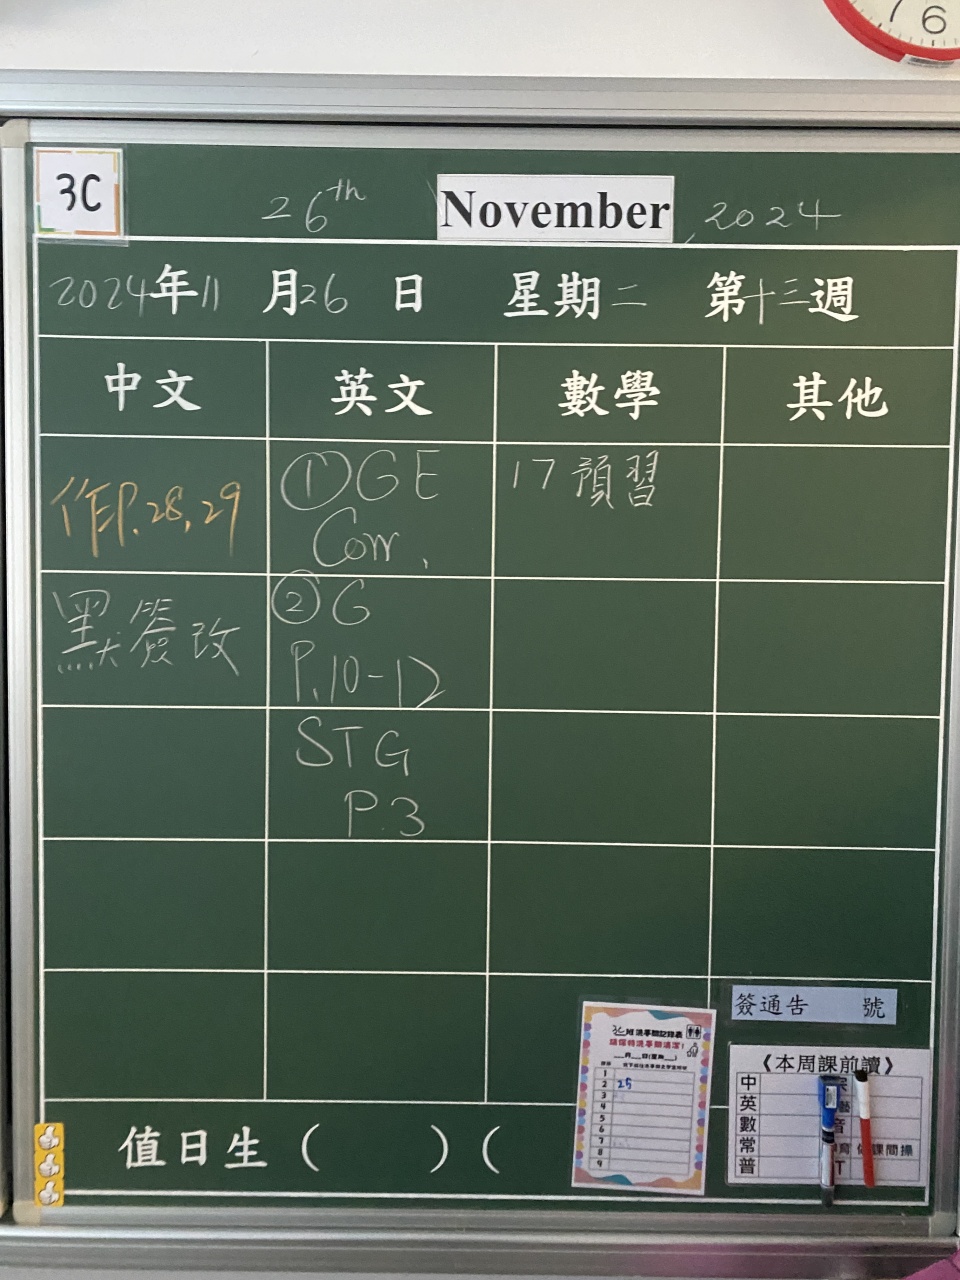 7 6
3C
26th November, 2024
2024年11月26日 星期二 第十三週
中文 英文 數學 其他
作P.28,29
默簽改
①GE
Corr.
②G
P.10-12
STG
P.3
17 預習
簽通告 號
3C班洗手間記錄表
1
2 25
3
4
5
6
7
8
9
《本周課前讀》
中
英
數
常
普
課間操
值日生( )(